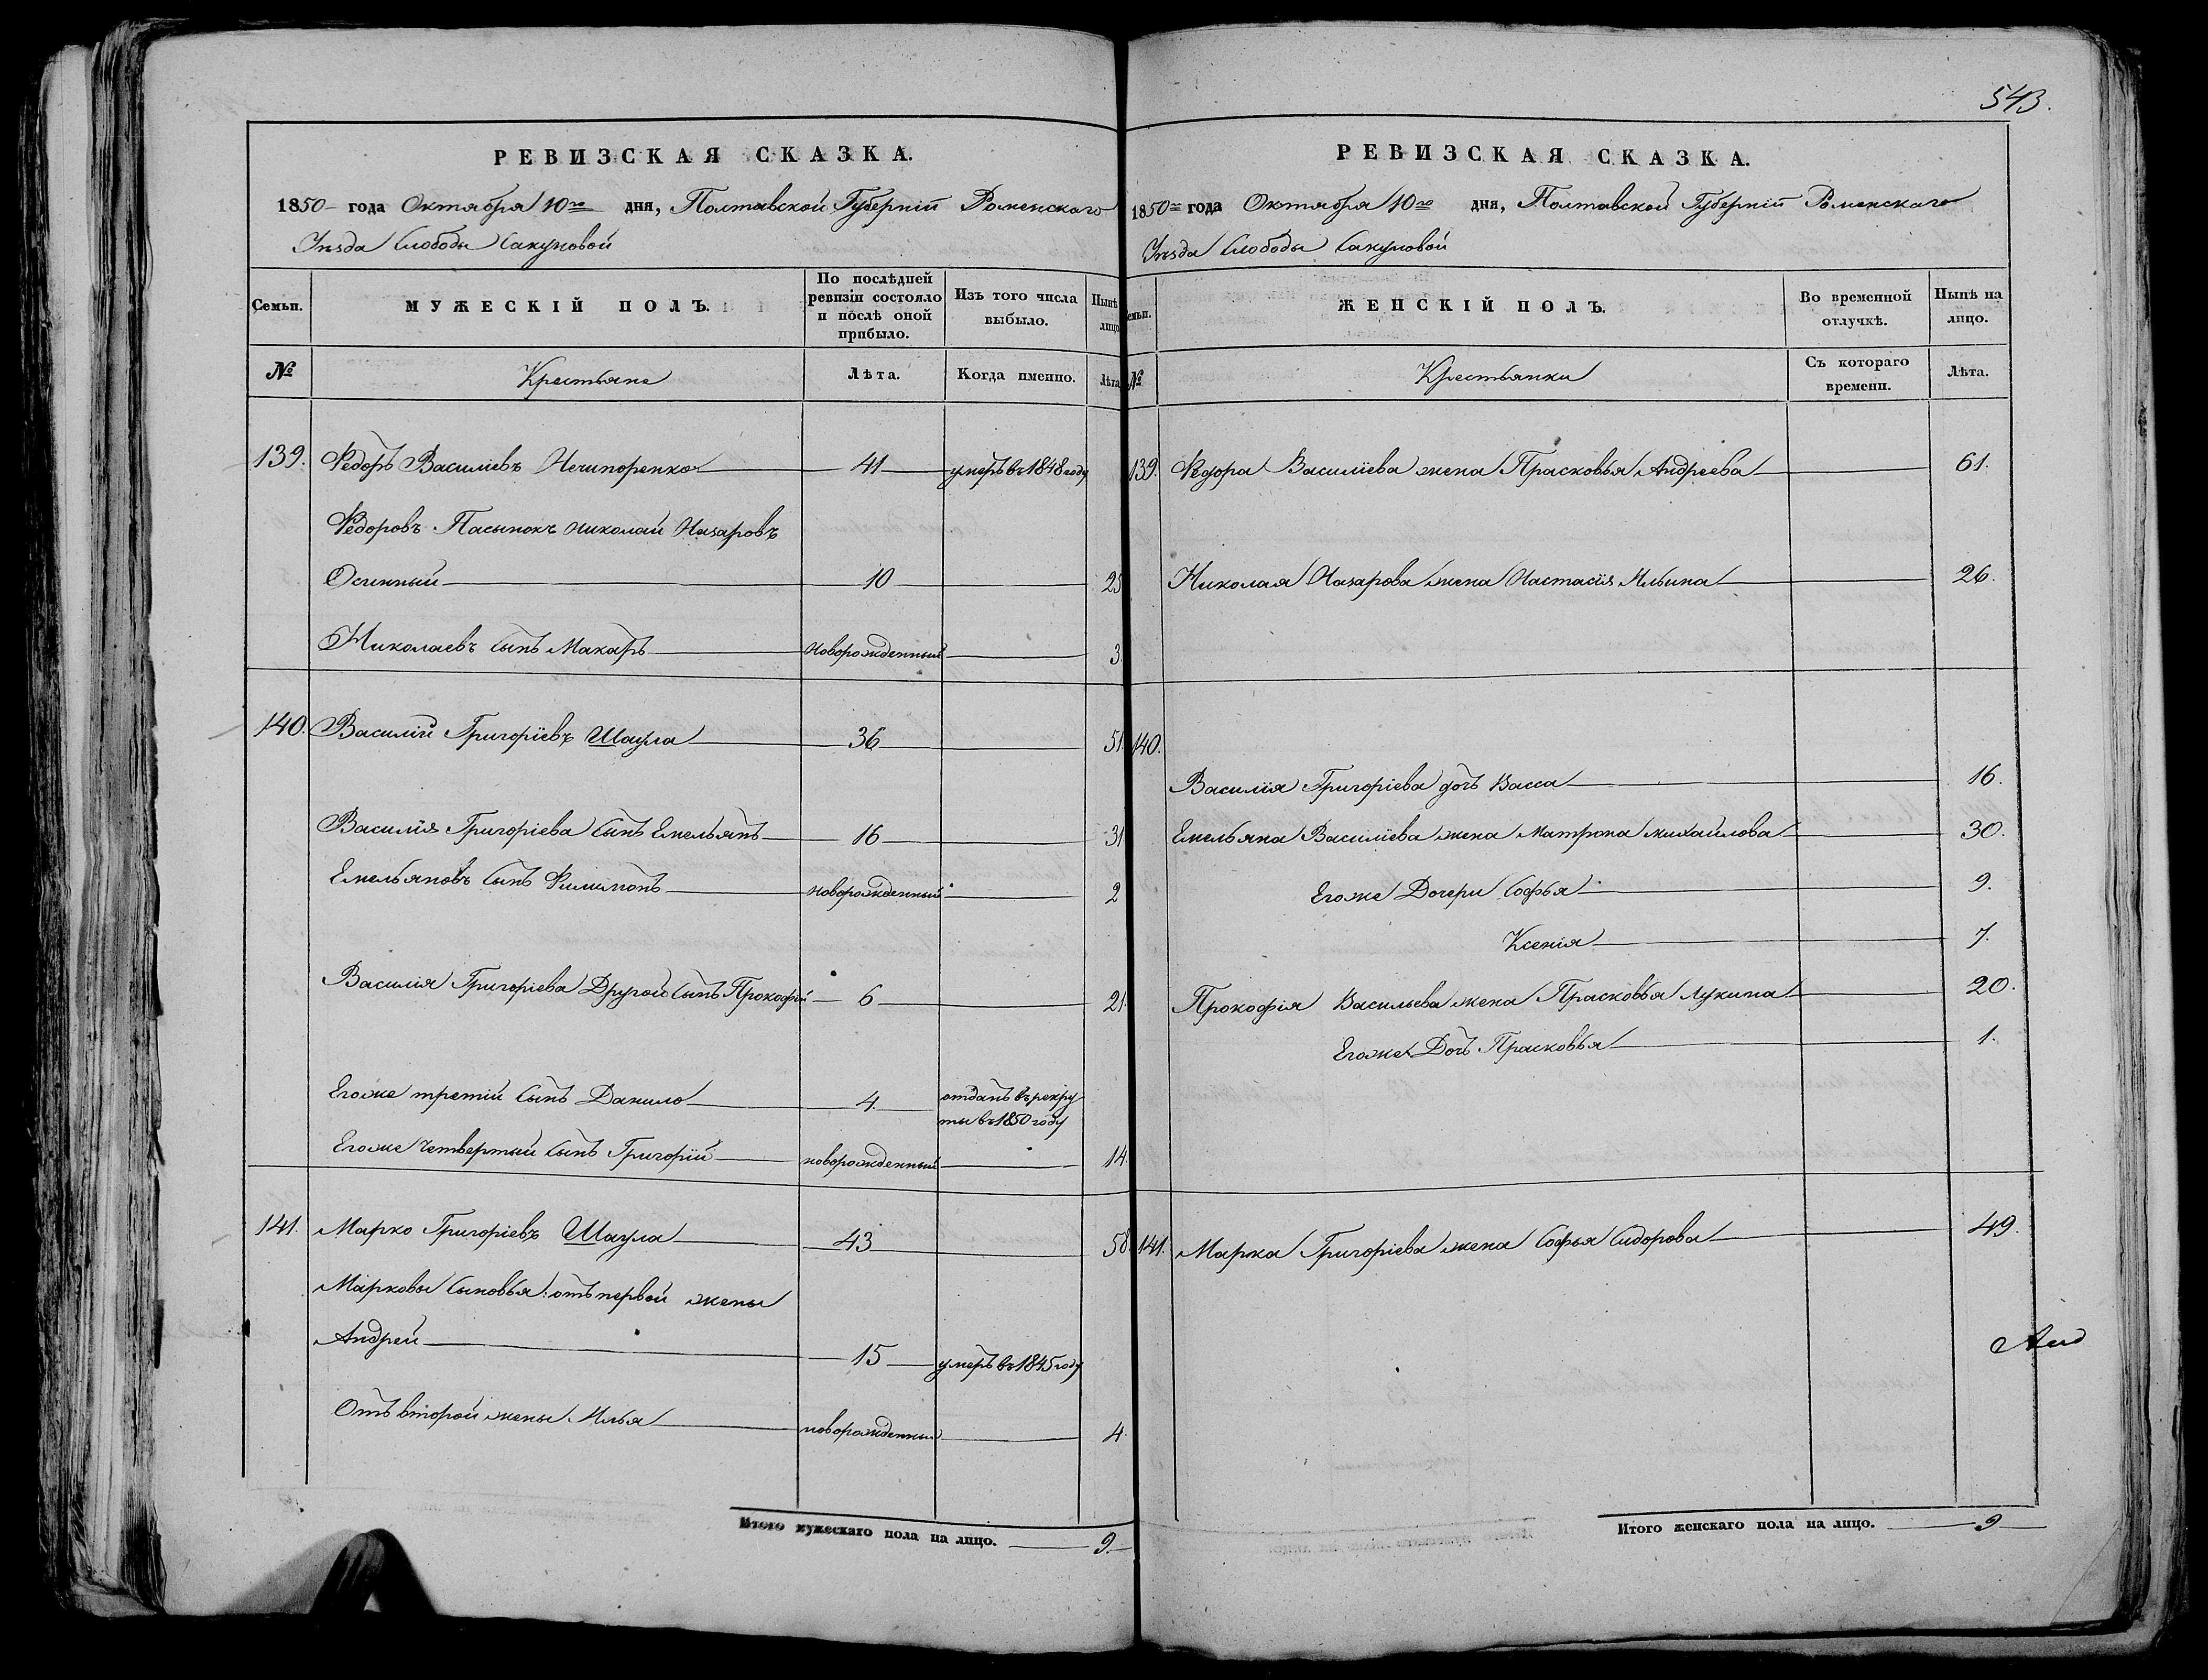 543.
РЕВИЗСКАЯ СКАЗКА.
1850 года Октября 10го дня, Полтавской Губерніи Роменскаго
Уѣзда Слободы Сакуновой
Семьи.
МУЖЕСКІЙ ПОЛЪ.
По послѣдней ревизіи состояло и послѣ оной прибыло.
Изъ того числа выбыло.
Нынѣ лицо
№
Крестьяне
Лѣта.
Когда именно.
Лѣта
139. Ѳедоръ Василіевъ Нечипоренко 41 умеръ въ 1848 году
Ѳедоровъ Пасынокъ Николай Назаровъ
Осинный 10 25
Николаевъ Сынъ Макаръ Новорожденный 3.
140. Василій Григоріевъ Шаула 36 51.
Василія Григоріева Сынъ Емельянъ 16 31
Емельяновъ Сынъ Филимонъ новорожденный 2
Василія Григоріева Другой Сынъ Прокофій 6 21.
Егоже третій Сынъ Данило 4 отданъ въ рекру
ты въ 1850 году
Егоже Четвертый Сынъ Григорій новорожденный 14.
141. Марко Григоріевъ Шаула 43 58.
Марковы Сыновья: отъ первой жены
Андрей 15 умеръ въ 1845 году
Отъ второй жены Илья новорожденный 4.
Итого мужескаго пола на лицо. 9.
РЕВИЗСКАЯ СКАЗКА.
1850 года Октября 10го дня, Полтавской Губерніи Роменскаго
Уѣзда Слободы Сакуновой
емьи.
ЖЕНСКІЙ ПОЛЪ.
Во временной отлучкѣ.
Нынѣ на лицо.
№
Крестьянки
Съ котораго времени.
Лѣта.
139. Ѳедора Василіева жена Прасковья Андреева 61.
Николая Назарова жена Настасія Ильина 26.
140.
Василія Григоріева дочь Васса 16.
Емельяна Василіева жена Матрона Михайлова 30.
Егоже Дочери Софья 9.
Ксенія 7.
Прокофія Васильева жена Прасковья Лукина 20.
Егоже Дочь Прасковья 1.
141. Марка Григоріева жена Софья Сидорова 49.
Итого женскаго пола на лицо. 9